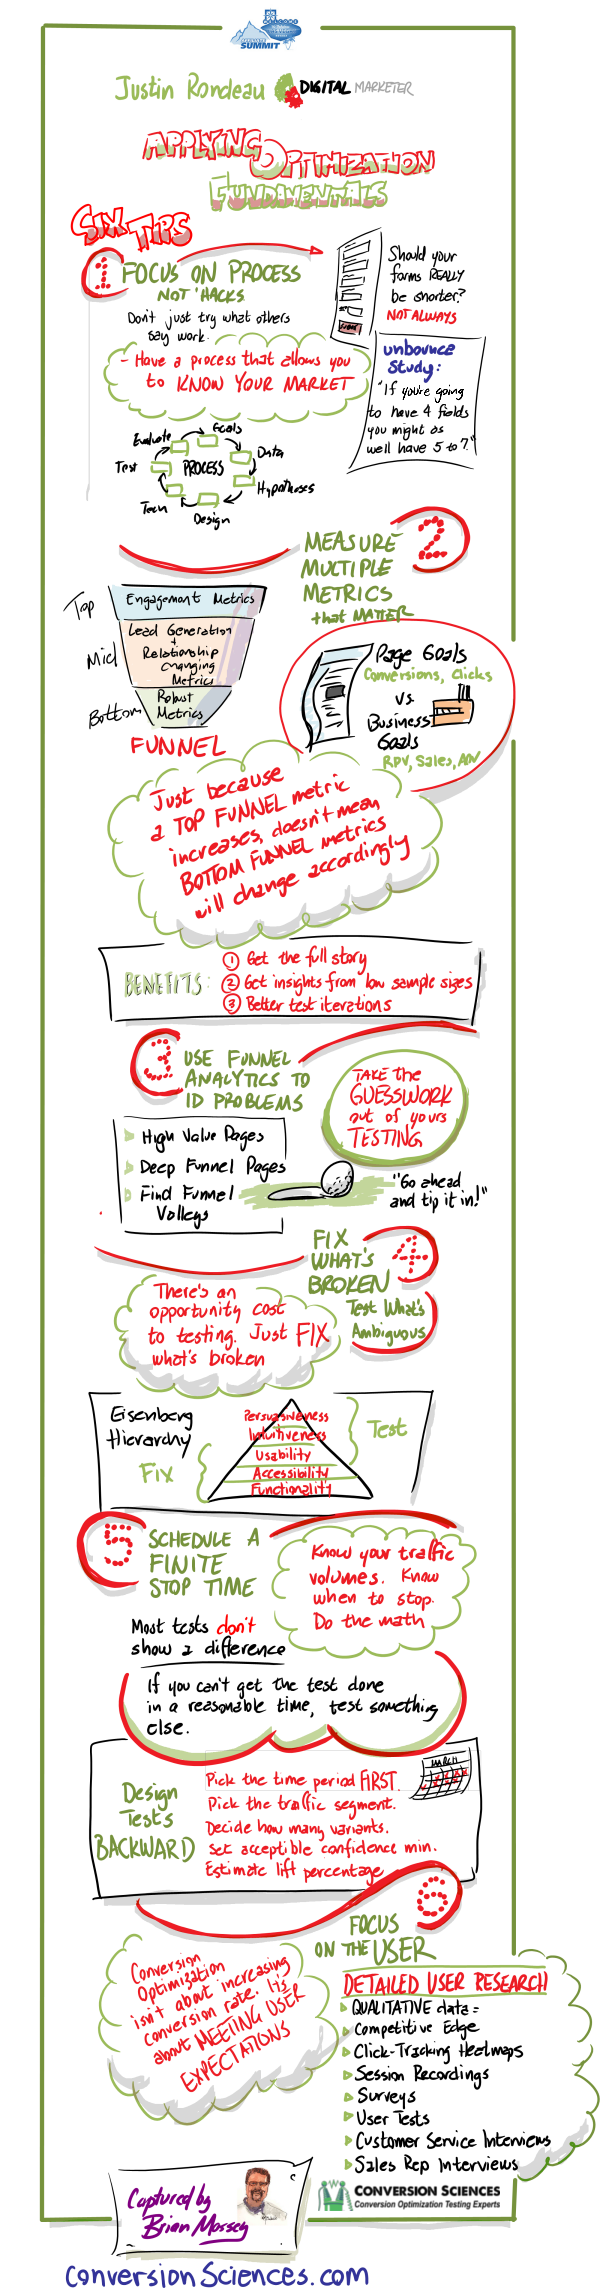 SUMMIT
Justin Rondeau
DIGITAL MARKETER
APPLYING
OPTIMIZATION
FUNDAMENTALS
SIX TIPS
1 FOCUS ON PROCESS
NOT 'HACKS
Don't just try what others
say work.
- Have a process that allows you
to KNOW YOUR MARKET
Should your
forms REALLY
be shorter?
NOT ALWAYS
unbounce
Study:
"If you're going
to have 4 fields
you might as
well have 5 to 7."
PROCESS
Goals
Data
Hypotheses
Design
Tech
Test
Evaluate
2
MEASURE
MULTIPLE
METRICS
that MATTER
Top
Engagement Metrics
Mid
Lead Generation
+
Relationship
Changing
Metrics
Bottom
Robust
Metrics
FUNNEL
Page Goals
Conversions, Clicks
vs.
Business
Goals
RPV, Sales, AOV
Just because
a TOP FUNNEL metric
increases, doesn't mean
BOTTOM FUNNEL metrics
will change accordingly
BENEFITS:
1 Get the full story
2 Get insights from low sample sizes
3 Better test iterations
3
USE FUNNEL
ANALYTICS TO
ID PROBLEMS
TAKE the
GUESSWORK
out of yours
TESTING
High Value Pages
Deep Funnel Pages
Find Funnel
Valleys
"Go ahead
and tip it in!"
4
FIX
WHAT'S
BROKEN
Test What's
Ambiguous
There's an
opportunity cost
to testing. Just FIX
what's broken
Eisenberg
Hierarchy
Fix
Persuasiveness
Intuitiveness
Usability
Accessibility
Functionality
Test
5
SCHEDULE A
FINITE
STOP TIME
Know your traffic
volumes. Know
when to stop.
Do the math
Most tests don't
show a difference
If you can't get the test done
in a reasonable time, test something
else.
Design
Tests
BACKWARD
Pick the time period FIRST.
Pick the traffic segment.
Decide how many variants.
Set acceptible confidence min.
Estimate lift percentage
MARCH
6
FOCUS
ON THE USER
Conversion
Optimization
isn't about increasing
conversion rate. It's
about MEETING USER
EXPECTATIONS
DETAILED USER RESEARCH
QUALITATIVE data =
Competitive Edge
Click-Tracking Heatmaps
Session Recordings
Surveys
User Tests
Customer Service Interviews
Sales Rep Interviews
Captured by
Brian Massey
CONVERSION SCIENCES
Conversion Optimization Testing Experts
ConversionSciences.com